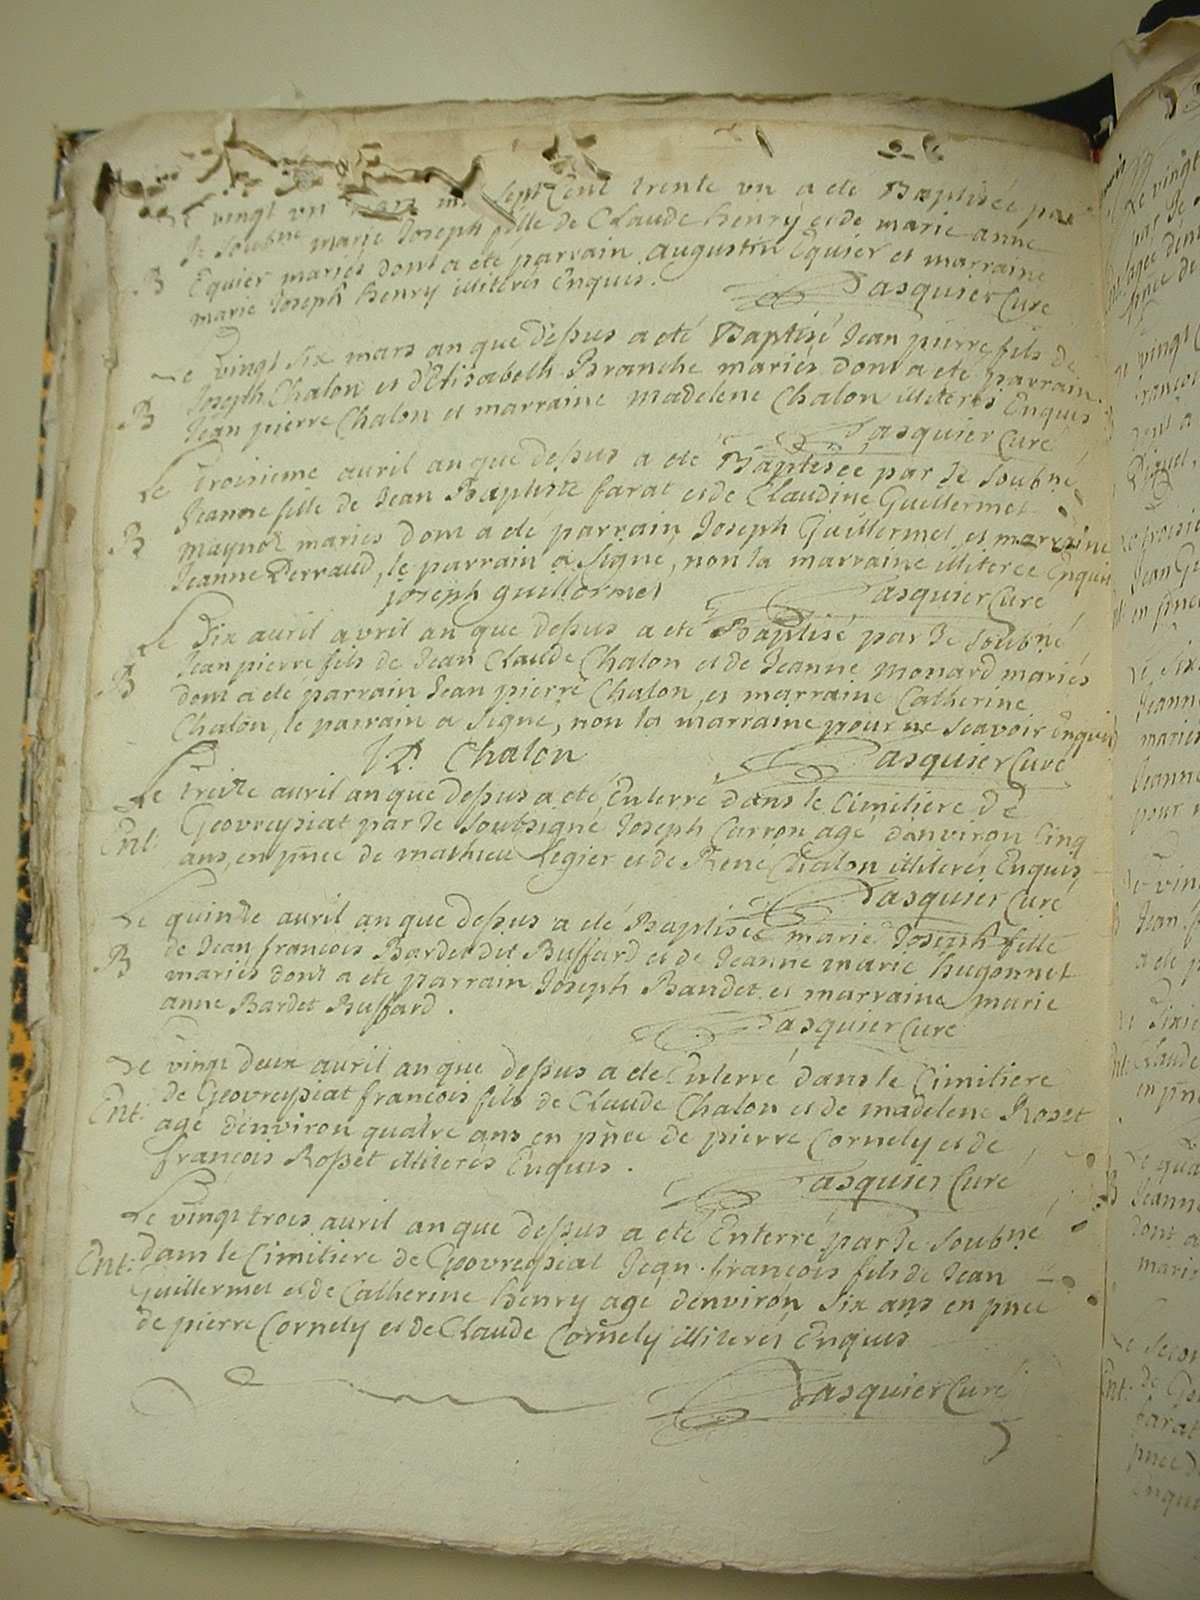 Le vingt un mars mil sept Cent trente un a eté Baptisée par
Je soubné marie Joseph fille de Claude henry et de marie anne
B Equier mariés dont a eté parrain augustin Equier et marraine
marie Joseph henry illiterés Enquis.
Pasquier Curé
Le vingt six mars an que dessus a eté Baptisé Jean pierre fils de
Joseph Chalon et d'Elisabeth Branche mariés dont a eté parrain
B Jean pierre Chalon et marraine madelene Chalon illiterés Enquis
Pasquier Curé
Le troisieme auril an que dessus a eté Baptisée par Je soubné
Jeanne fille de Jean Baptiste farat et de Claudine Guillermet
B maynoz mariés dont a eté parrain Joseph Guillermet et marraine
Jeanne Derraud, le parrain a signé, non la marraine illiterée Enquis
joseph guillermet
Pasquier Curé
Le dix auril avril an que dessus a eté Baptisé par Je soubné
Jean pierre fils de Jean Claude Chalon et de Jeanne monard mariés
B dont a eté parrain Jean pierre Chalon, et marraine Catherine
Chalon, le parrain a signé, non la marraine pour ne scavoir Enquis
J.P. Chalon
Pasquier Curé
Le treize auril an que dessus a eté Enterré dans le Cimitiere de
Geovreysiat par Je soubsigné Joseph Curron agé d'environ Cinq
Ent: ans, en pñce de mathieu Legier et de René Chalon illiterés Enquis
Pasquier Curé
Le quinze auril an que dessus a eté Baptisée marie Joseph fille
de Jean françois Bardet dit Buffard et de Jeanne marie hugonnet
B mariés dont a eté parrain Joseph Baudet et marraine marie
anne Bardet Buffard.
Pasquier Curé
Le vingt deux auril an que dessus a eté Enterré dans le Cimitiere
de Geovreysiat francois fils de Claude Chalon et de madelene Roset
Ent: agé d'environ quatre ans en pñce de pierre Cornely et de
francois Rosset illiterés Enquis.
Pasquier Curé
Le vingt trois auril an que dessus a eté Enterré par Je soubné
Ent: dans le Cimitiere de Geovreysiat Jean françois fils de Jean
Guillermet et de Catherine henry agé d'environ six ans en pñce
de pierre Cornely et de Claude Cornely illiterés Enquis
Pasquier Curé